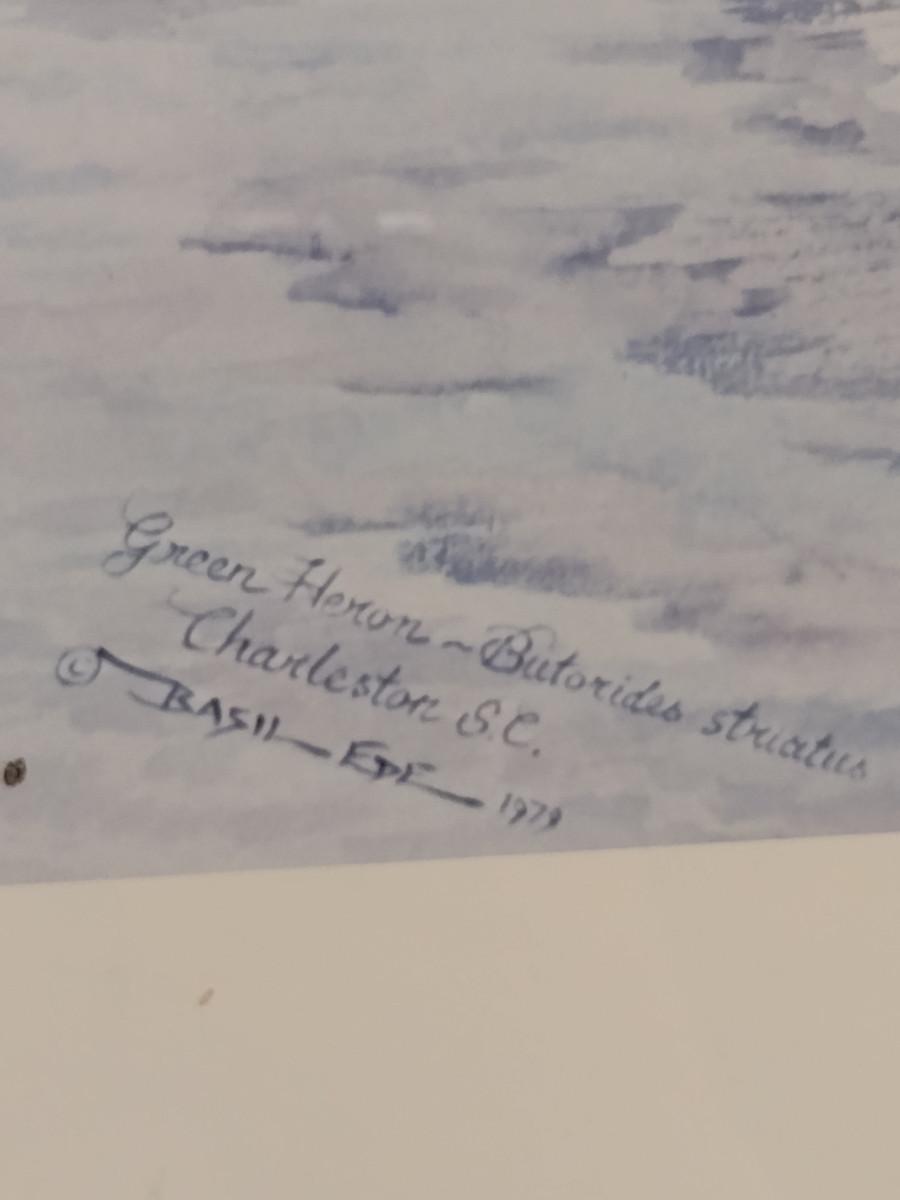 Green Heron ~ Butorides striatus
Charleston S.C.
© BASIL EDE 1979